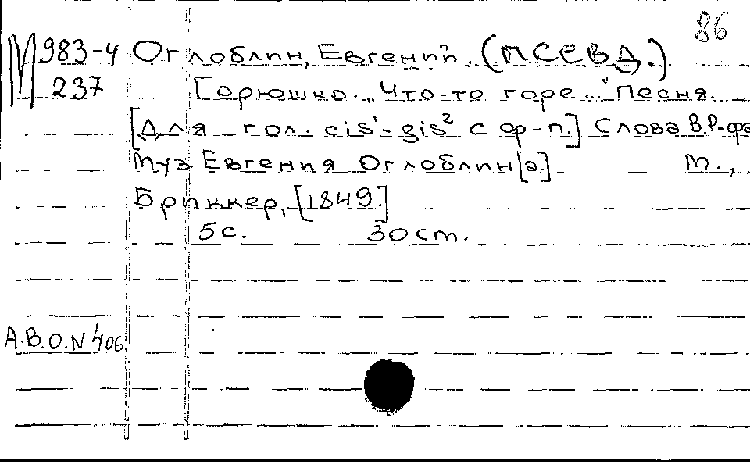 86
М 983-4 Оглоблин, Евгений. (ПСЕВД.)
237 Горюшко. "Что-то горе..." Песня
[Для гол. cis¹-gis² с ф-п.] Слова В.Р-фа
Муз Евгения Оглоблин[а] М.,
Бриккер, [1849]
5с. 30см.
А.В.О.N 406